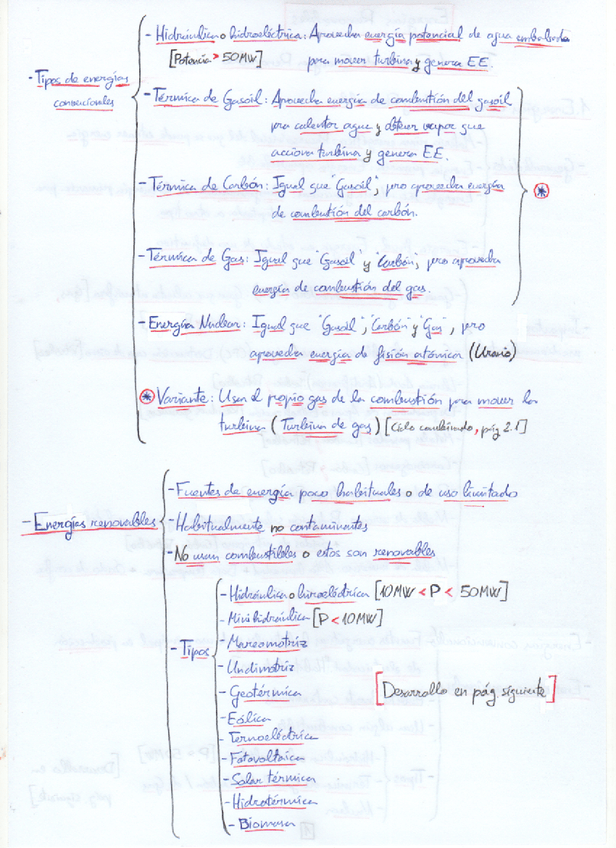 - Hidráulica o hidroeléctrica: Aprovecha energía potencial de agua embalsada
[Potencia > 50MW] para mover turbina y genera EE.
- Tipos de energías
convencionales
- Térmica de Gasoil: Aprovecha energía de combustión del gasoil
para calentar agua y obtener vapor que
acciona turbina y genera EE.
- Térmica de Carbón: Igual que "Gasoil", pero aprovecha energía
de combustión del carbón.
*
- Térmica de Gas: Igual que "Gasoil" y "Carbón", pero aprovecha
energía de combustión del gas.
- Energía Nuclear: Igual que "Gasoil", "Carbón" y "Gas", pero
aprovecha energía de fisión atómica (Uranio)
* Variante: Usar el propio gas de la combustión para mover la
turbina (Turbina de gas) [Ciclo combinado, pág 2.1]
- Energías renovables
- Fuentes de energía poco habituales o de uso limitado
- Habitualmente no contaminantes
- No usan combustibles o estos son renovables
- Tipos
- Hidráulica o hidroeléctrica [10MW < P < 50MW]
- Minihidráulica [P < 10MW]
- Mareomotriz
- Undimotriz
- Geotérmica
[Desarrollo en pág siguiente]
- Eólica
- Termoeléctrica
- Fotovoltaica
- Solar térmica
- Hidrotérmica
- Biomasa